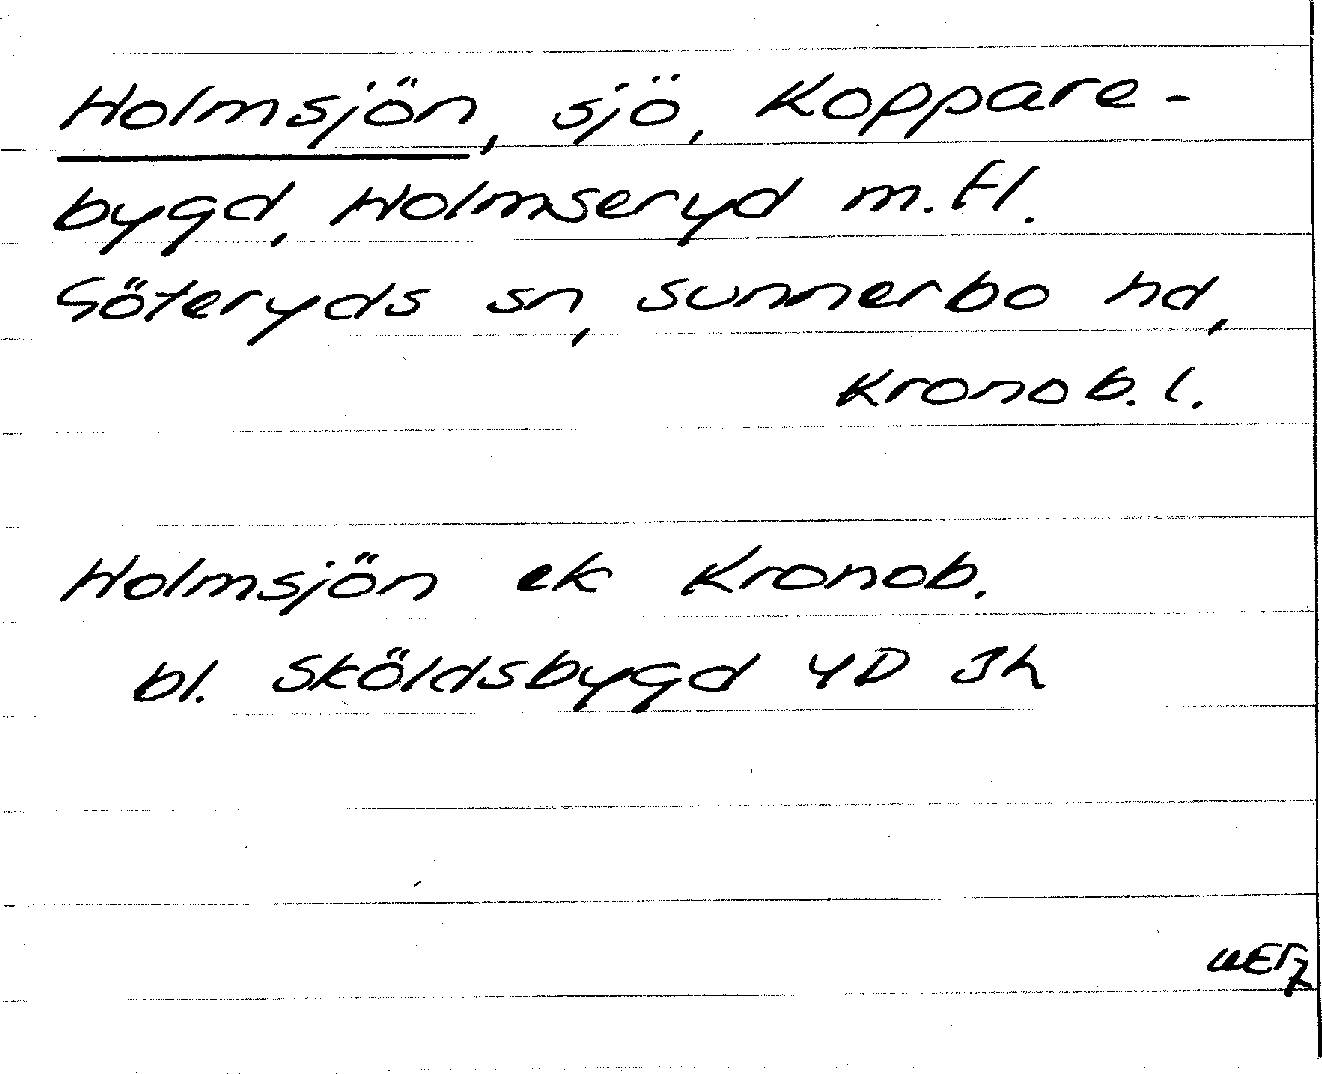 Holmsjön, sjö, Koppare-
bygd, Holmseryd m.fl.
Göteryds sn, Sunnerbo hd,
Kronob. l.
Holmsjön ek Kronob.
bl. Sköldsbygd 4D Jh